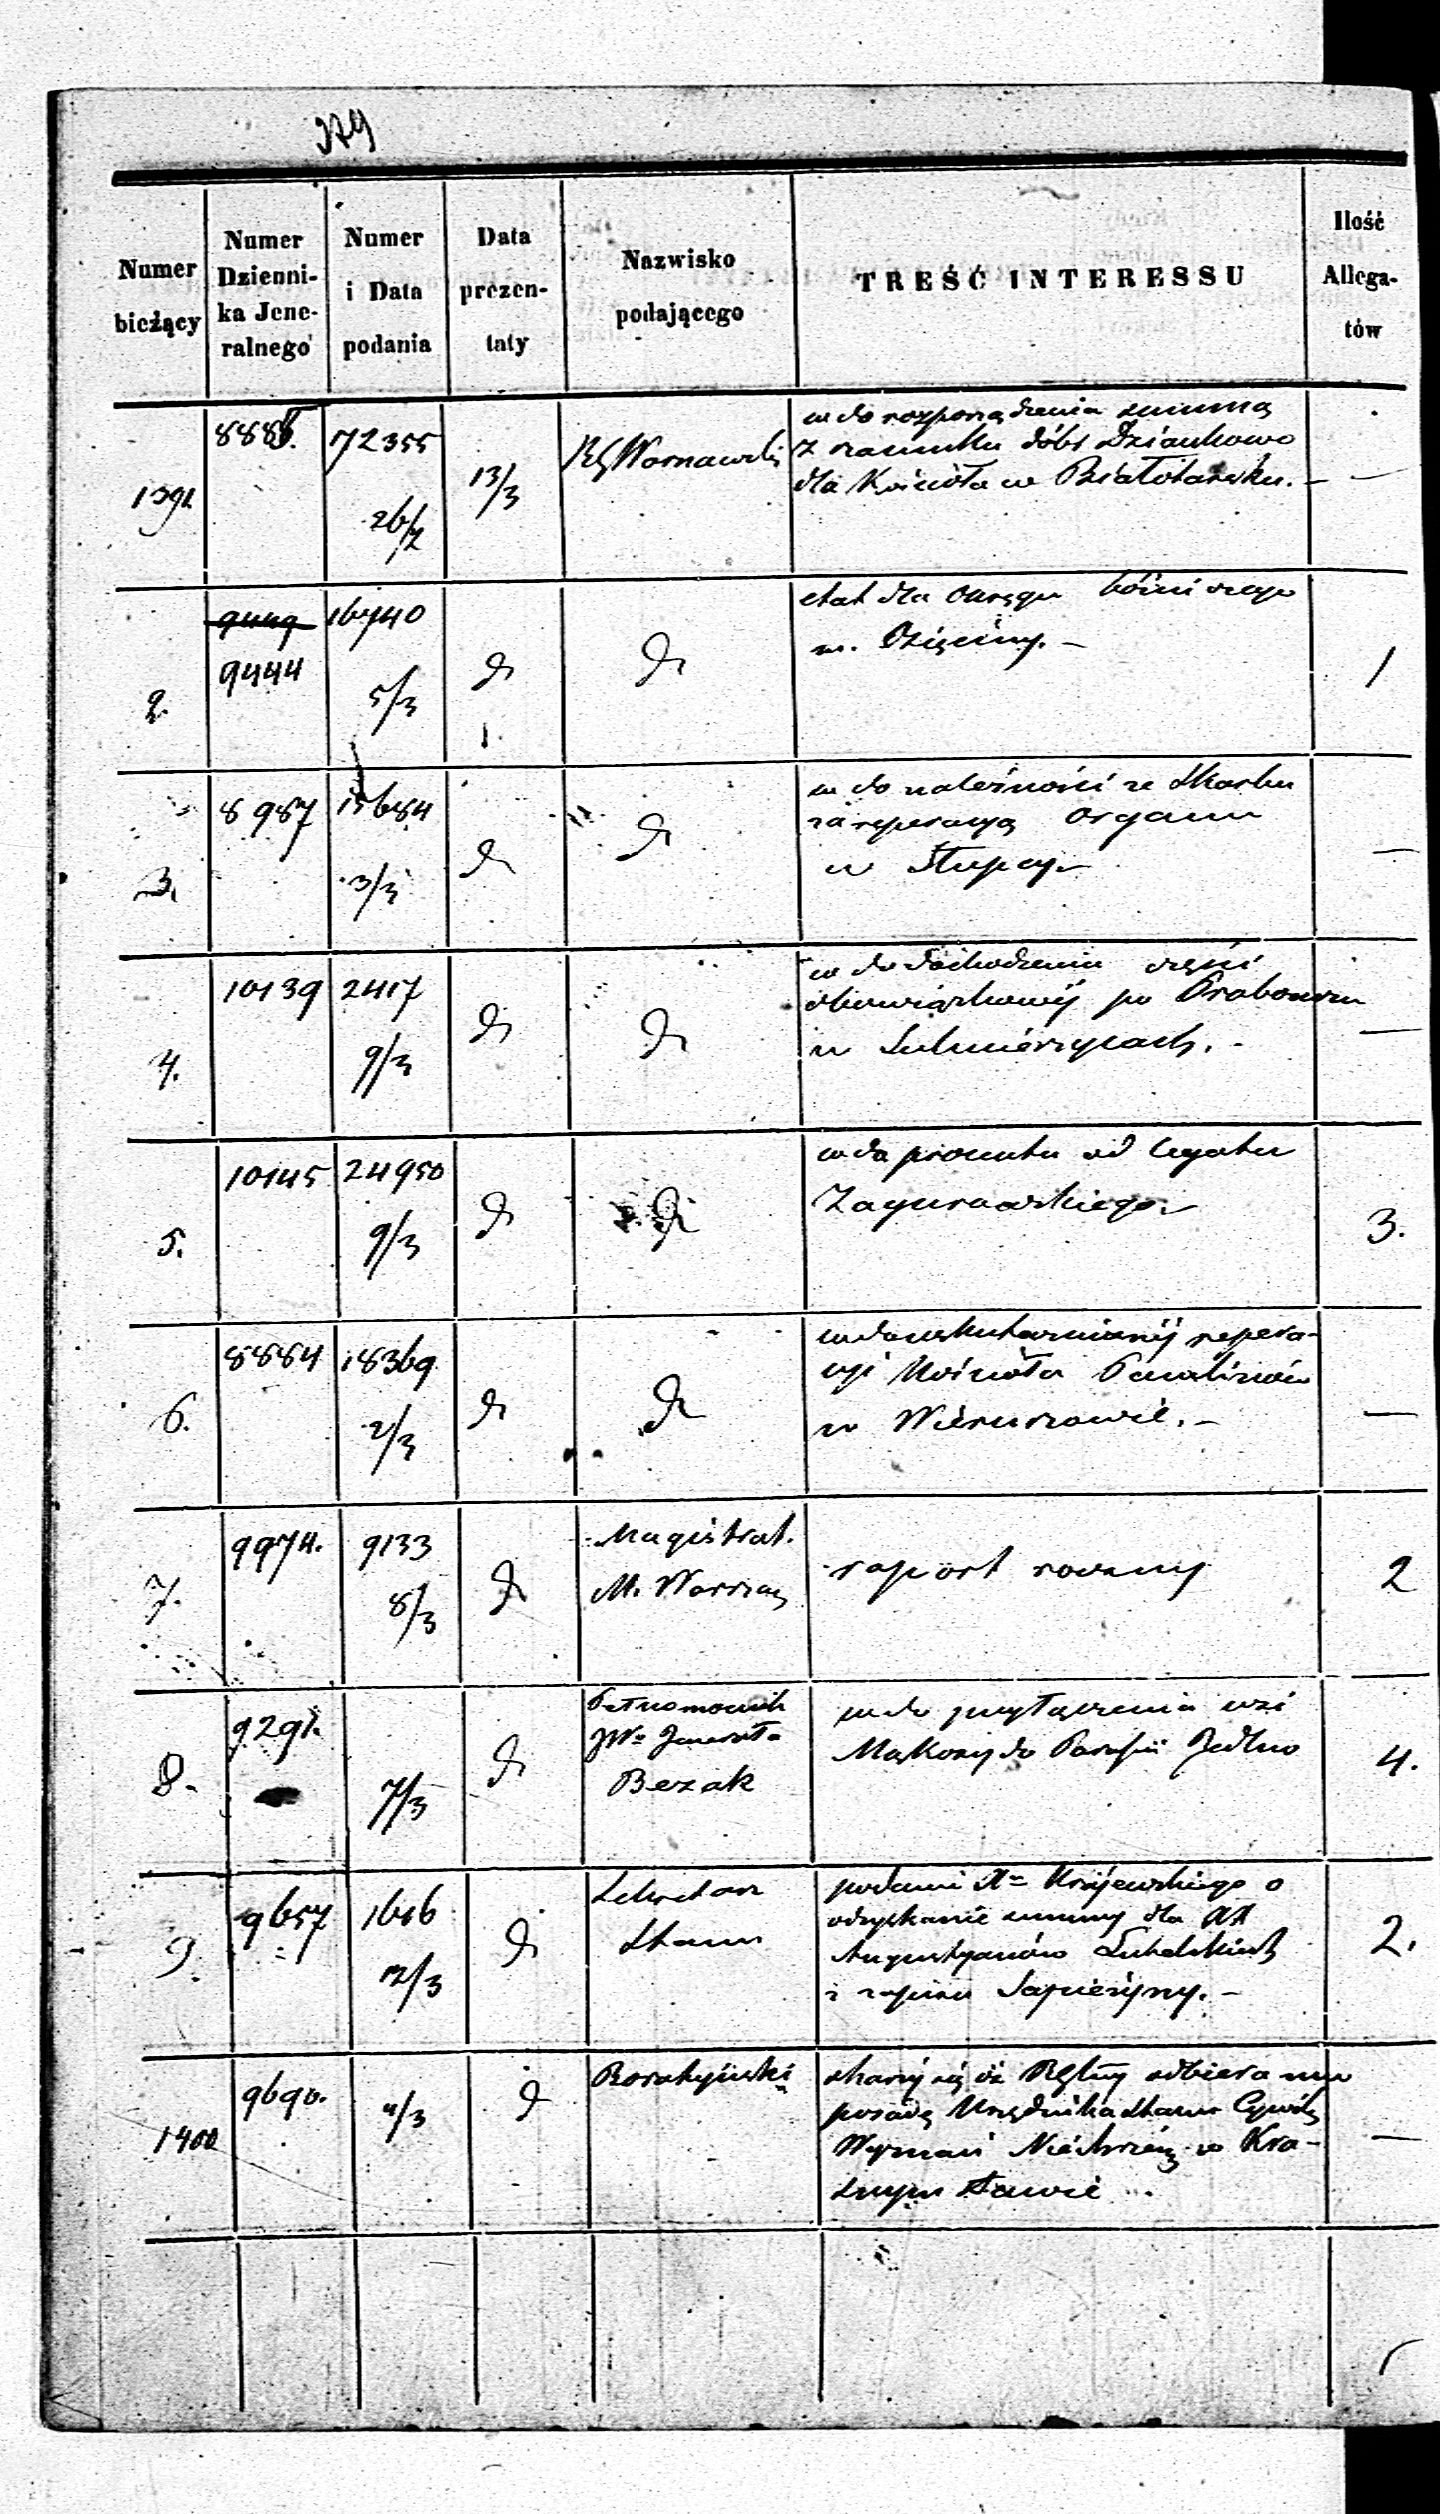 379
Numer bieżący
Numer Dzienni-
ka Jene-
ralnego
Numer i Data podania
Data prezen-
taty
Nazwisko podającego
TREŚĆ INTERESSU
Ilość Allega-
tów
1391
888
72355
26/2
13/3
RG Warszawski
w do rozporządzenia summą
z szacunku dóbr Dziankowo
dla Kościoła w Białotarsku. –
—
2.
9444
16740
5/3
d
d
etat dla Okręgu bóżniczego
w.
1
3.
8987
15684
3/3
d
d
w do należności ze Skarbu
za reperacyą organu
w Słupcy
—
4.
10139
2417
9/3
d
d
w do dochodzenia części
obowiązkowéj po
w Sulmierzycach.
—
5.
10145
24950
9/3
d
d
w do procentu od legatu
Zagurowskiego
3.
6.
8884
18369
2/3
d
d
w do uskutecznionéj repera-
cyi Kościoła Paulinów
w Wieruszowie. –
—
7.
9974.
9133
8/3
d
Magistrat
M. Warszawy
raport roczny
2
8.
9291.
7/3
d
Pełnomocnik
JWo Jenerała
Bezak
w do przyłączenia wsi
do Parafii Jedlno
4.
9.
9657
1616
12/3
d
Sekretarz
Stanu
podanie Xa Krajewskiego o
odzyskanie summy dla XX
Augustyanów Lubelskich
z zapisu Sapieżyny. –
2.
1400
9690.
11/3
d
skarży się iż odbiera mu
posadę Urzędnika Stanu Cywil
Wyznań Niechrześć w Kra-
snym Stawie
—